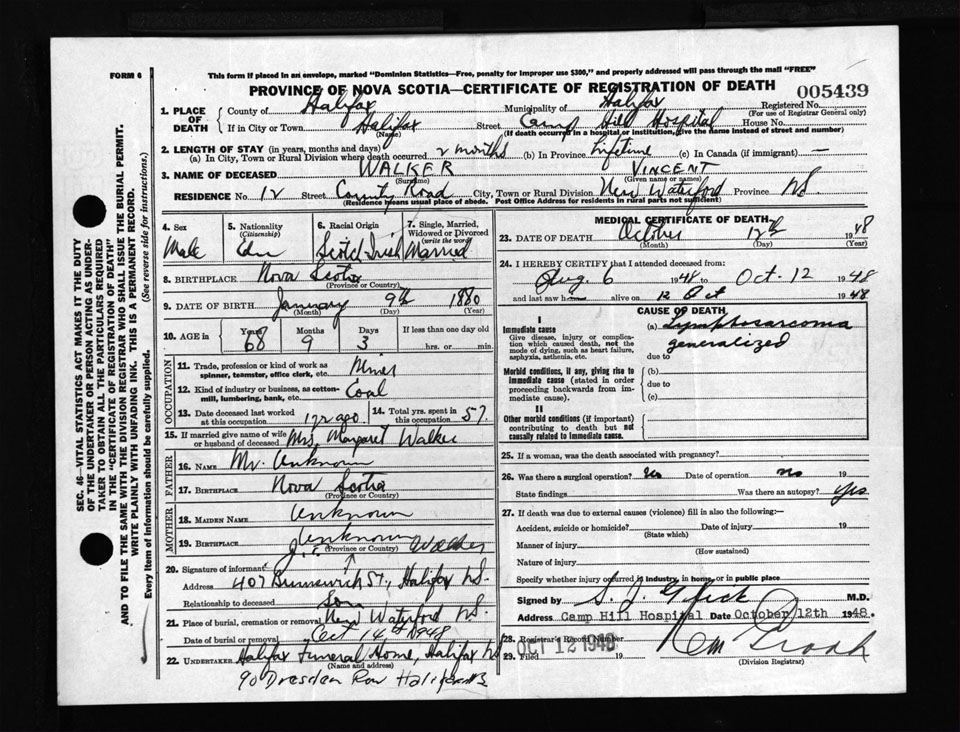 FORM 6
This form if placed in an envelope, marked "Dominion Statistics—Free, penalty for improper use $300," and properly addressed will pass through the mail "FREE"
PROVINCE OF NOVA SCOTIA—CERTIFICATE OF REGISTRATION OF DEATH 005439
1. PLACE OF DEATH
County of Halifax Municipality of Halifax Registered No.
(For use of Registrar General only)
If in City or Town Halifax Street Camp Hill Hospital House No.
(Name) (If death occurred in a hospital or institution, give the name instead of street and number)
2. LENGTH OF STAY (in years, months and days)
(a) In City, Town or Rural Division where death occurred 2 months (b) In Province Lifetime (c) In Canada (if immigrant) —
3. NAME OF DECEASED WALKER VINCENT
(Surname) (Given name or names)
RESIDENCE No. 12 Street County Road City, Town or Rural Division New Waterford Province NS
(Residence means usual place of abode. Post Office Address for residents in rural parts not sufficient)
4. Sex Male
5. Nationality (Citizenship) Cdn
6. Racial Origin Scotch Irish
7. Single, Married, Widowed or Divorced (write the word) Married
8. BIRTHPLACE Nova Scotia
(Province or Country)
9. DATE OF BIRTH January 9th 1880
(Month) (Day) (Year)
10. AGE in Years 68 Months 9 Days 3 If less than one day old
hrs. or min.
OCCUPATION
11. Trade, profession or kind of work as spinner, teamster, office clerk, etc. Miner
12. Kind of industry or business, as cotton-mill, lumbering, bank, etc. Coal
13. Date deceased last worked at this occupation 1 yr ago
14. Total yrs. spent in this occupation 57.
15. If married give name of wife or husband of deceased Mrs. Margaret Walker
FATHER
16. NAME Mr. Unknown
17. BIRTHPLACE Nova Scotia
(Province or Country)
MOTHER
18. MAIDEN NAME Unknown
19. BIRTHPLACE Unknown
(Province or Country)
20. Signature of informant Walker
Address 407 Brunswick St., Halifax NS.
Relationship to deceased Son
21. Place of burial, cremation or removal New Waterford NS.
Date of burial or removal Oct 14th 1948
22. UNDERTAKER Halifax Funeral Home, Halifax NS
(Name and address)
90 Dresden Row Halifax NS
MEDICAL CERTIFICATE OF DEATH
23. DATE OF DEATH October 12th 1948
(Month) (Day) (Year)
24. I HEREBY CERTIFY that I attended deceased from
Aug. 6 1948 to Oct. 12 1948
and last saw h alive on 12 Oct 1948
CAUSE OF DEATH
I
Immediate cause
Give disease, injury or complication which caused death, not the mode of dying, such as heart failure, asphyxia, asthenia, etc.
(a) Lymphosarcoma
generalized
due to
Morbid conditions, if any, giving rise to immediate cause (stated in order proceeding backwards from immediate cause).
(b)
due to
(c)
II
Other morbid conditions (if important) contributing to death but not causally related to immediate cause.
25. If a woman, was the death associated with pregnancy?
26. Was there a surgical operation? Date of operation no 19
State findings Was there an autopsy? Yes
27. If death was due to external causes (violence) fill in also the following:—
Accident, suicide or homicide? Date of injury 19
(State which)
Manner of injury
(How sustained)
Nature of injury
Specify whether injury occurred in industry, in home, or in public place
Signed by M.D.
Address Camp Hill Hospital Date October 12th 1948.
28. Registrar's Record Number
29. Filed OCT 12 1948 19
(Division Registrar)
SEC. 46—VITAL STATISTICS ACT MAKES IT THE DUTY
OF THE UNDERTAKER OR PERSON ACTING AS UNDER-
TAKER TO OBTAIN ALL THE PARTICULARS REQUIRED
IN THE "CERTIFICATE OF REGISTRATION OF DEATH"
AND TO FILE THE SAME WITH THE DIVISION REGISTRAR WHO SHALL ISSUE THE BURIAL PERMIT.
WRITE PLAINLY WITH UNFADING INK. THIS IS A PERMANENT RECORD.
Every item of information should be carefully supplied. (See reverse side for instructions.)